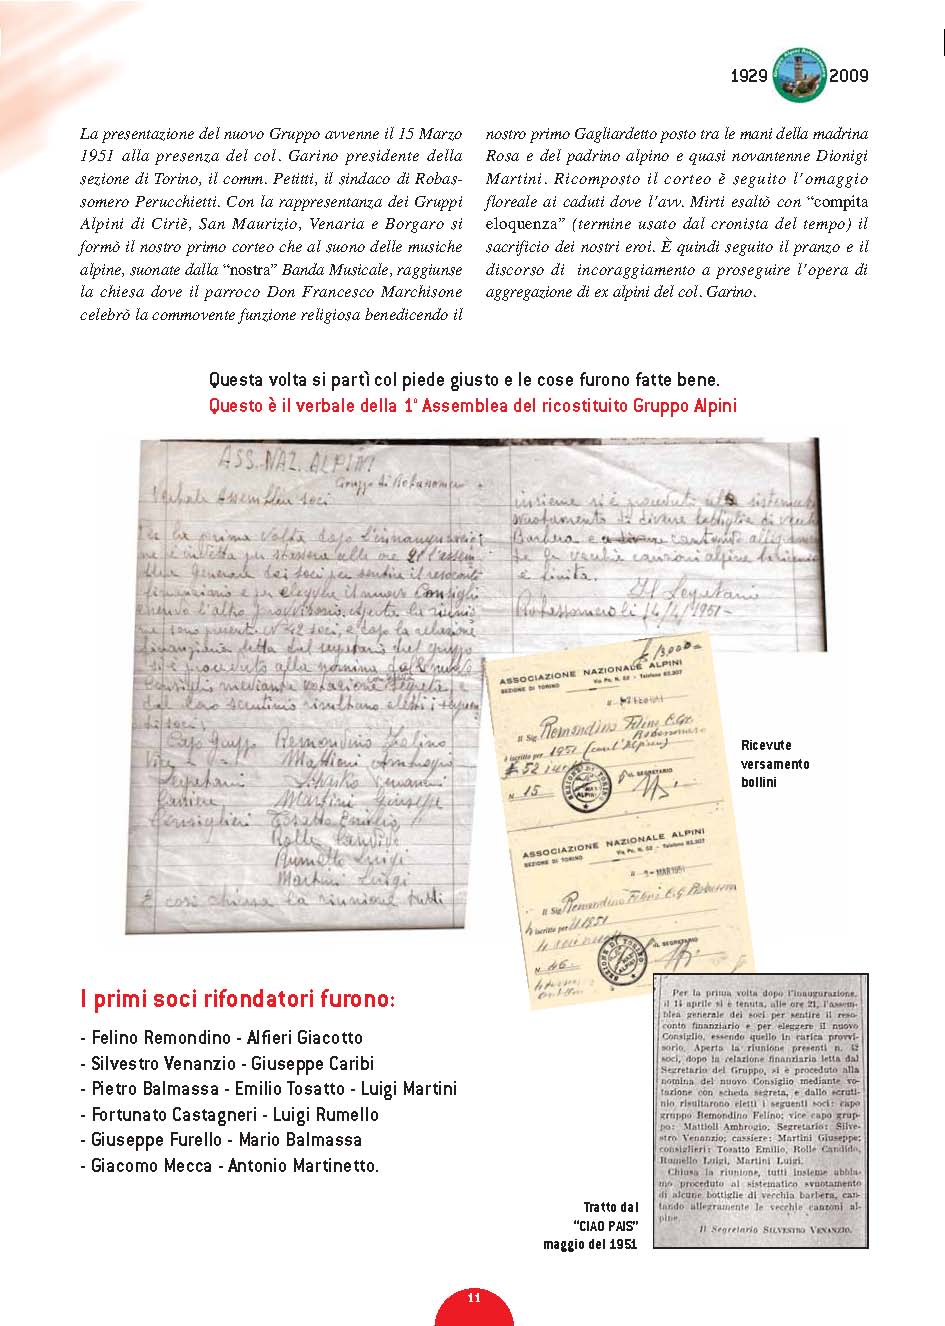 1929
2009
La presentazione del nuovo Gruppo avvenne il 15 Marzo
1951 alla presenza del col. Garino presidente della
sezione di Torino, il comm. Petitti, il sindaco di Robas-
somero Perucchietti. Con la rappresentanza dei Gruppi
Alpini di Ciriè, San Maurizio, Venaria e Borgaro si
formò il nostro primo corteo che al suono delle musiche
alpine, suonate dalla “nostra” Banda Musicale, raggiunse
la chiesa dove il parroco Don Francesco Marchisone
celebrò la commovente funzione religiosa benedicendo il
nostro primo Gagliardetto posto tra le mani della madrina
Rosa e del padrino alpino e quasi novantenne Dionigi
Martini. Ricomposto il corteo è seguito l’omaggio
floreale ai caduti dove l’avv. Mirti esaltò con “compita
eloquenza” (termine usato dal cronista del tempo) il
sacrificio dei nostri eroi. È quindi seguito il pranzo e il
discorso di incoraggiamento a proseguire l’opera di
aggregazione di ex alpini del col. Garino.
Questa volta si partì col piede giusto e le cose furono fatte bene.
Questo è il verbale della 1ª Assemblea del ricostituito Gruppo Alpini
ASS. NAZ. ALPINI
Gruppo di Robassomero
Verbale Assemblea soci
Per la prima volta dopo l'innaugurazio
ne è indetta per stassera alle ore 21 l'assem
blea generale dei soci per sentire il resoconto
finanziario e per eleggere il nuovo Consiglio
Aperta la riunio
ne sono presenti N° 42 soci, e dopo la relazione
finanziaria letta dal segretario del gruppo
si è proceduto alla nomina del nuovo
Consiglio mediante votazione segreta, e
dal loro scrutinio risultano eletti i seguenti
soci:
Capo Gruppo Remondino Felino
Vice Mattioli Ambrogio
Segretario Silvestro Venanzio
Cassiere Martini Giuseppe
Consiglieri Tosatto Emilio
Rolle Candido
Rumello Luigi
Martini Luigi
E così chiusa la riunione tutti
insieme si è proceduto al sistematico
svuotamento di diverse bottiglie di vecchia
Barbera e cantando allegramente
le vecchie canzoni alpine la riunione
è finita.
Il Segretario
Robassomero li 14/4/1951-
£ 13,000=
ASSOCIAZIONE NAZIONALE ALPINI
SEZIONE DI TORINO Via Po, N. 52 - Telefono 82.307
Il Sig. Remondino Felino C.G.
Robassomero
è iscritto per 1951
IL SEGRETARIO
N. 15
ASSOCIAZIONE NAZIONALE ALPINI
SEZIONE DI TORINO Via Po, N. 52 - Telefono 82.307
MAR 1951
Il Sig. Remondino Felino C.G.
è iscritto per il 1951
IL SEGRETARIO
N. 46
Ricevute
versamento
bollini
I primi soci rifondatori furono:
- Felino Remondino - Alfieri Giacotto
- Silvestro Venanzio - Giuseppe Caribi
- Pietro Balmassa - Emilio Tosatto - Luigi Martini
- Fortunato Castagneri - Luigi Rumello
- Giuseppe Furello - Mario Balmassa
- Giacomo Mecca - Antonio Martinetto.
Per la prima volta dopo l'inaugurazione,
il 14 aprile si è tenuta, alle ore 21, l'assem-
blea generale dei soci per sentire il reso-
conto finanziario e per eleggere il nuovo
Consiglio, essendo quello in carica provvi-
sorio. Aperta la riunione presenti n. 42
soci, dopo la relazione finanziaria letta dal
Segretario del Gruppo, si è proceduto alla
nomina del nuovo Consiglio mediante vo-
tazione con scheda segreta, e dallo scruti-
nio risultarono eletti i seguenti soci: capo
gruppo Remondino Felino; vice capo grup-
po: Mattioli Ambrogio. Segretario: Silve-
stro Venanzio; cassiere: Martini Giuseppe;
consiglieri: Tosatto Emilio, Rolle Candido,
Rumello Luigi, Martini Luigi.
Chiusa la riunione, tutti insieme abbia-
mo proceduto al sistematico svuotamento
di alcune bottiglie di vecchia barbera, can-
tando allegramente le vecchie canzoni al-
pine.
Il Segretario SILVESTRO VENANZIO.
Tratto dal
“CIAO PAIS”
maggio del 1951
11